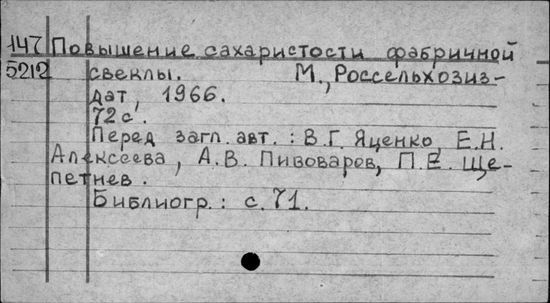 147 Повышение сахаристости фабричной
5212 свеклы. М., Россельхозиз-
дат, 1966.
72 с.
Перед загл. авт.: В.Г. Яценко, Е.Н.
Алексеева, А.В. Пивоваров, П.Е. Ще-
петнев.
Библиогр.: с. 71.